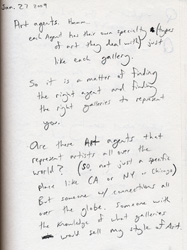 Jan. 27 2009
Art agents. Hmm...
each Agent has their own specialty (types
of art they deal with) just
like each gallery.
So it is a matter of finding
the right agent and finding
the right galleries to represent
you.
Are there Art agents that
represent artists all over the
world? (So, not just a specific
place like CA or NY or Chicago)
But someone w/ connections all
over the globe. Someone with
the knowledge of what galleries
would sell my style of Art.